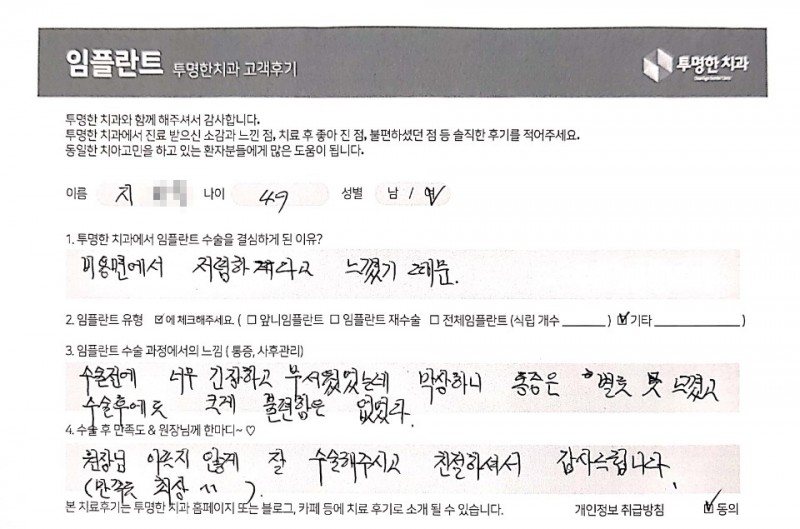 임플란트 투명한치과 고객후기 투명한 치과
투명한 치과와 함께 해주셔서 감사합니다.
투명한 치과에서 진료 받으신 소감과 느낀 점, 치료 후 좋아 진 점, 불편하셨던 점 등 솔직한 후기를 적어주세요.
동일한 치아고민을 하고 있는 환자분들에게 많은 도움이 됩니다.
이름 지 나이 49 성별 남 / 여
1. 투명한 치과에서 임플란트 수술을 결심하게 된 이유?
비용면에서 저렴하다고 느꼈기 때문.
2. 임플란트 유형 ☑에 체크해주세요. ( □ 앞니임플란트 □ 임플란트 재수술 □ 전체임플란트 (식립 개수 ______ ) ☑ 기타 ____________ )
3. 임플란트 수술 과정에서의 느낌 ( 통증, 사후관리)
수술전에 너무 긴장하고 무서웠었는데 막상하니 통증은 별로 못 느꼈고
수술후에도 크게 불편함은 없었다.
4. 수술 후 만족도 & 원장님께 한마디~ ♡
원장님 아프지 않게 잘 수술해주시고 친절하셔서 감사드립니다.
(만족도 최상 ^^ ).
본 치료후기는 투명한 치과 홈페이지 또는 블로그, 카페 등에 치료 후기로 소개 될 수 있습니다. 개인정보 취급방침 ☑ 동의